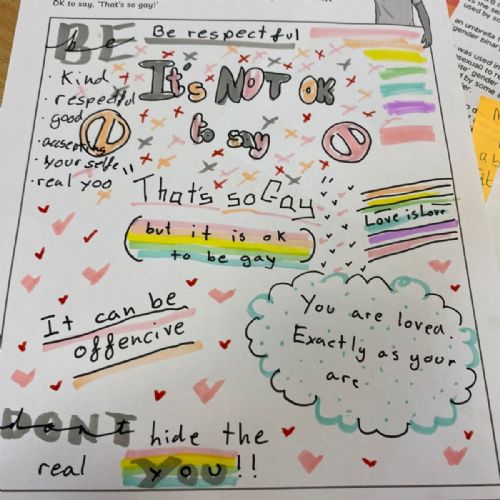 OK to say, 'That's so gay!'
BE
be
Be respectful
It's NOT OK
to say
• Kind
• respectful
• good
• your self
• real yoo
"That's so Gay"
(but it is ok
to be gay)
Love is Love
It can be
offencive
You are loved.
Exactly as your
are
DONT
dont
hide the
real
YOU!!
used by
an umbrella t
gender bin
was used in